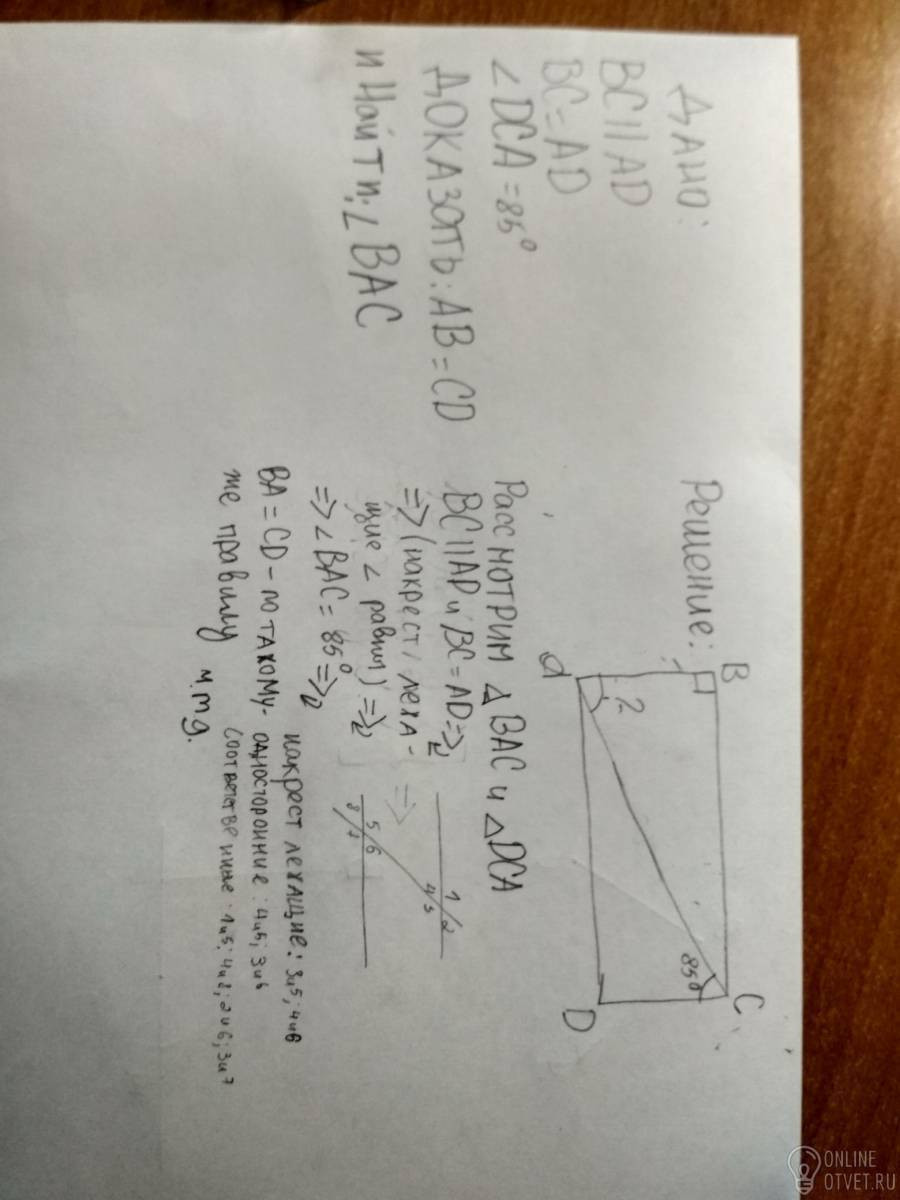 Дано:
BC || AD
BC = AD
∠DCA = 85°
ДОКАЗАТЬ: AB = CD
и Найти: ∠BAC
Решение:
B
C
A
D
?
85°
Рассмотрим △ BAC и △DCA
BC || AD и BC = AD =>
=> (накрест лежа-
щие ∠ равны) =>
=> ∠BAC = 85° =>
BA = CD - по такому-
же правилу ч.т.д.
=>
1/2
4/3
5/6
8/7
накрест лежащие: 3и5; 4и6
односторонние: 4и5; 3и6
соответственные: 1и5; 4и8; 2и6; 3и7
ONLINE
OTVET.RU